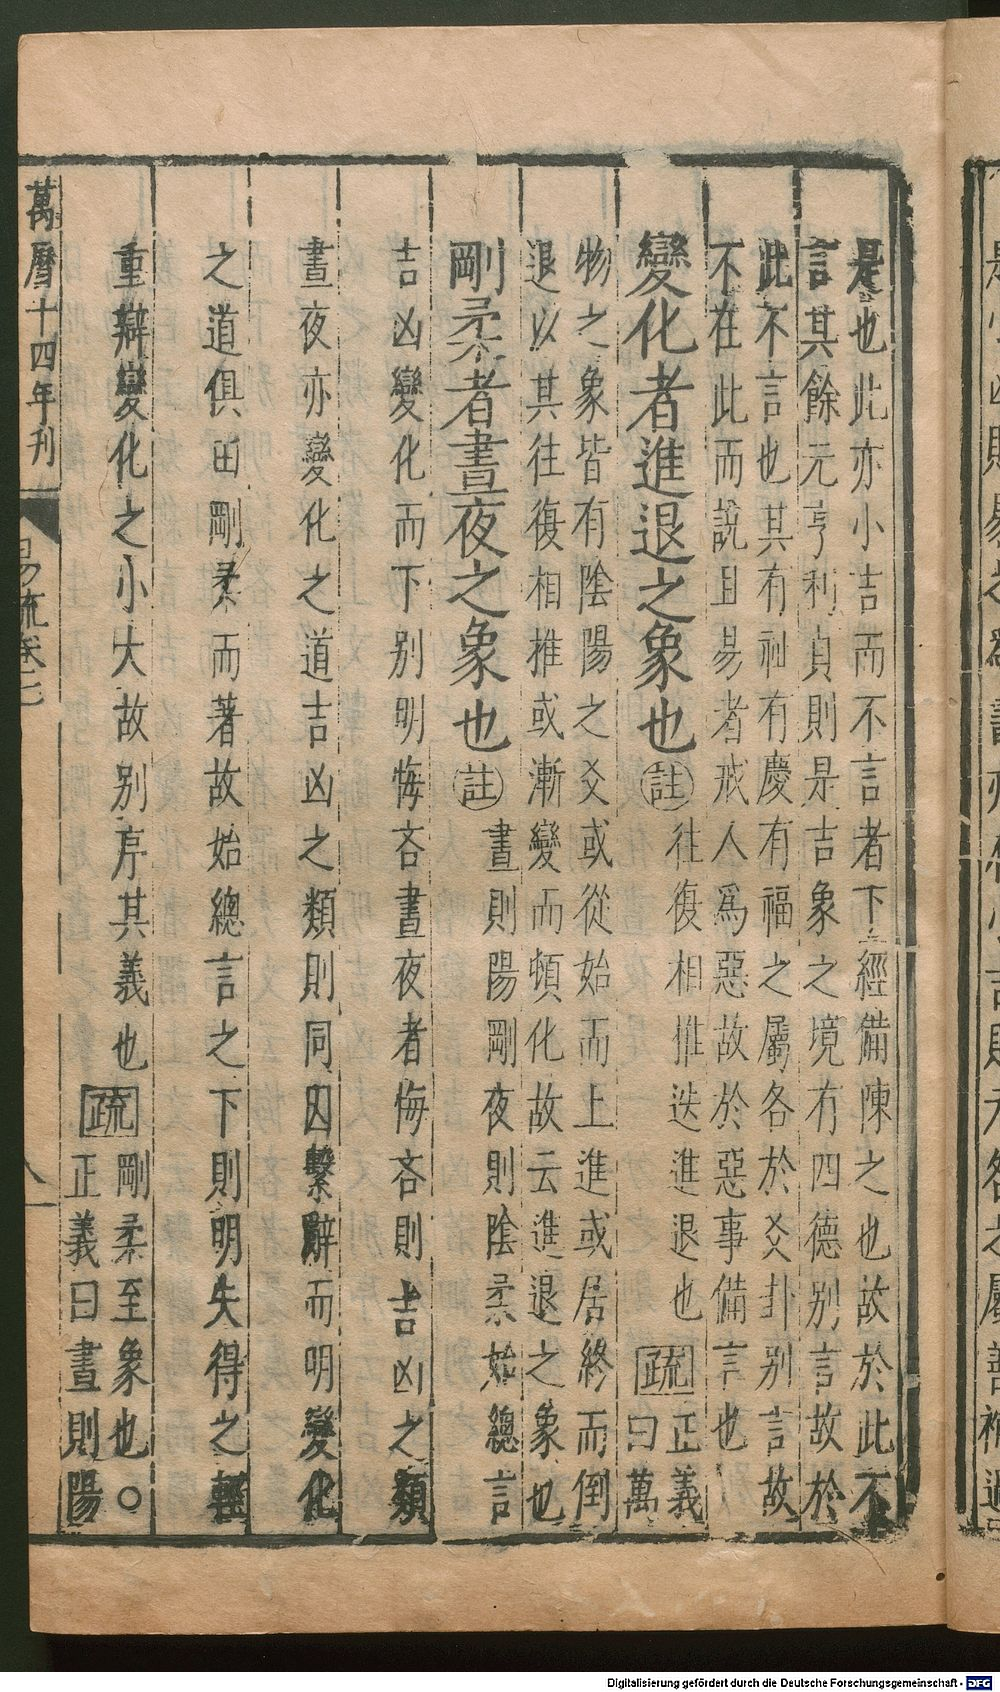 是也此亦小吉而不言者下經備陳之也故於此不
言其餘元亨利貞則是吉象之境有四德别言故於
此不言也其有祉有慶有福之屬各於爻卦别言故
不在此而說且易者戒人爲惡故於惡事備言也
變化者進退之象也註往復相推迭進退也疏正義
曰萬
物之象皆有陰陽之爻或從始而上進或居終而倒
退以其往復相推或漸變而頓化故云進退之象也
剛柔者晝夜之象也註晝則陽剛夜則陰柔始總言
吉凶變化而下别明悔吝晝夜者悔吝則吉凶之類
晝夜亦變化之道吉凶之類則同因繫辭而明變化
之道俱由剛柔而著故始總言之下則明失得之輕
重辯變化之小大故别序其義也疏剛柔至象也○
正義曰晝則陽
萬曆十四年刊
易疏卷七
Digitalisierung gefördert durch die Deutsche Forschungsgemeinschaft - DFG